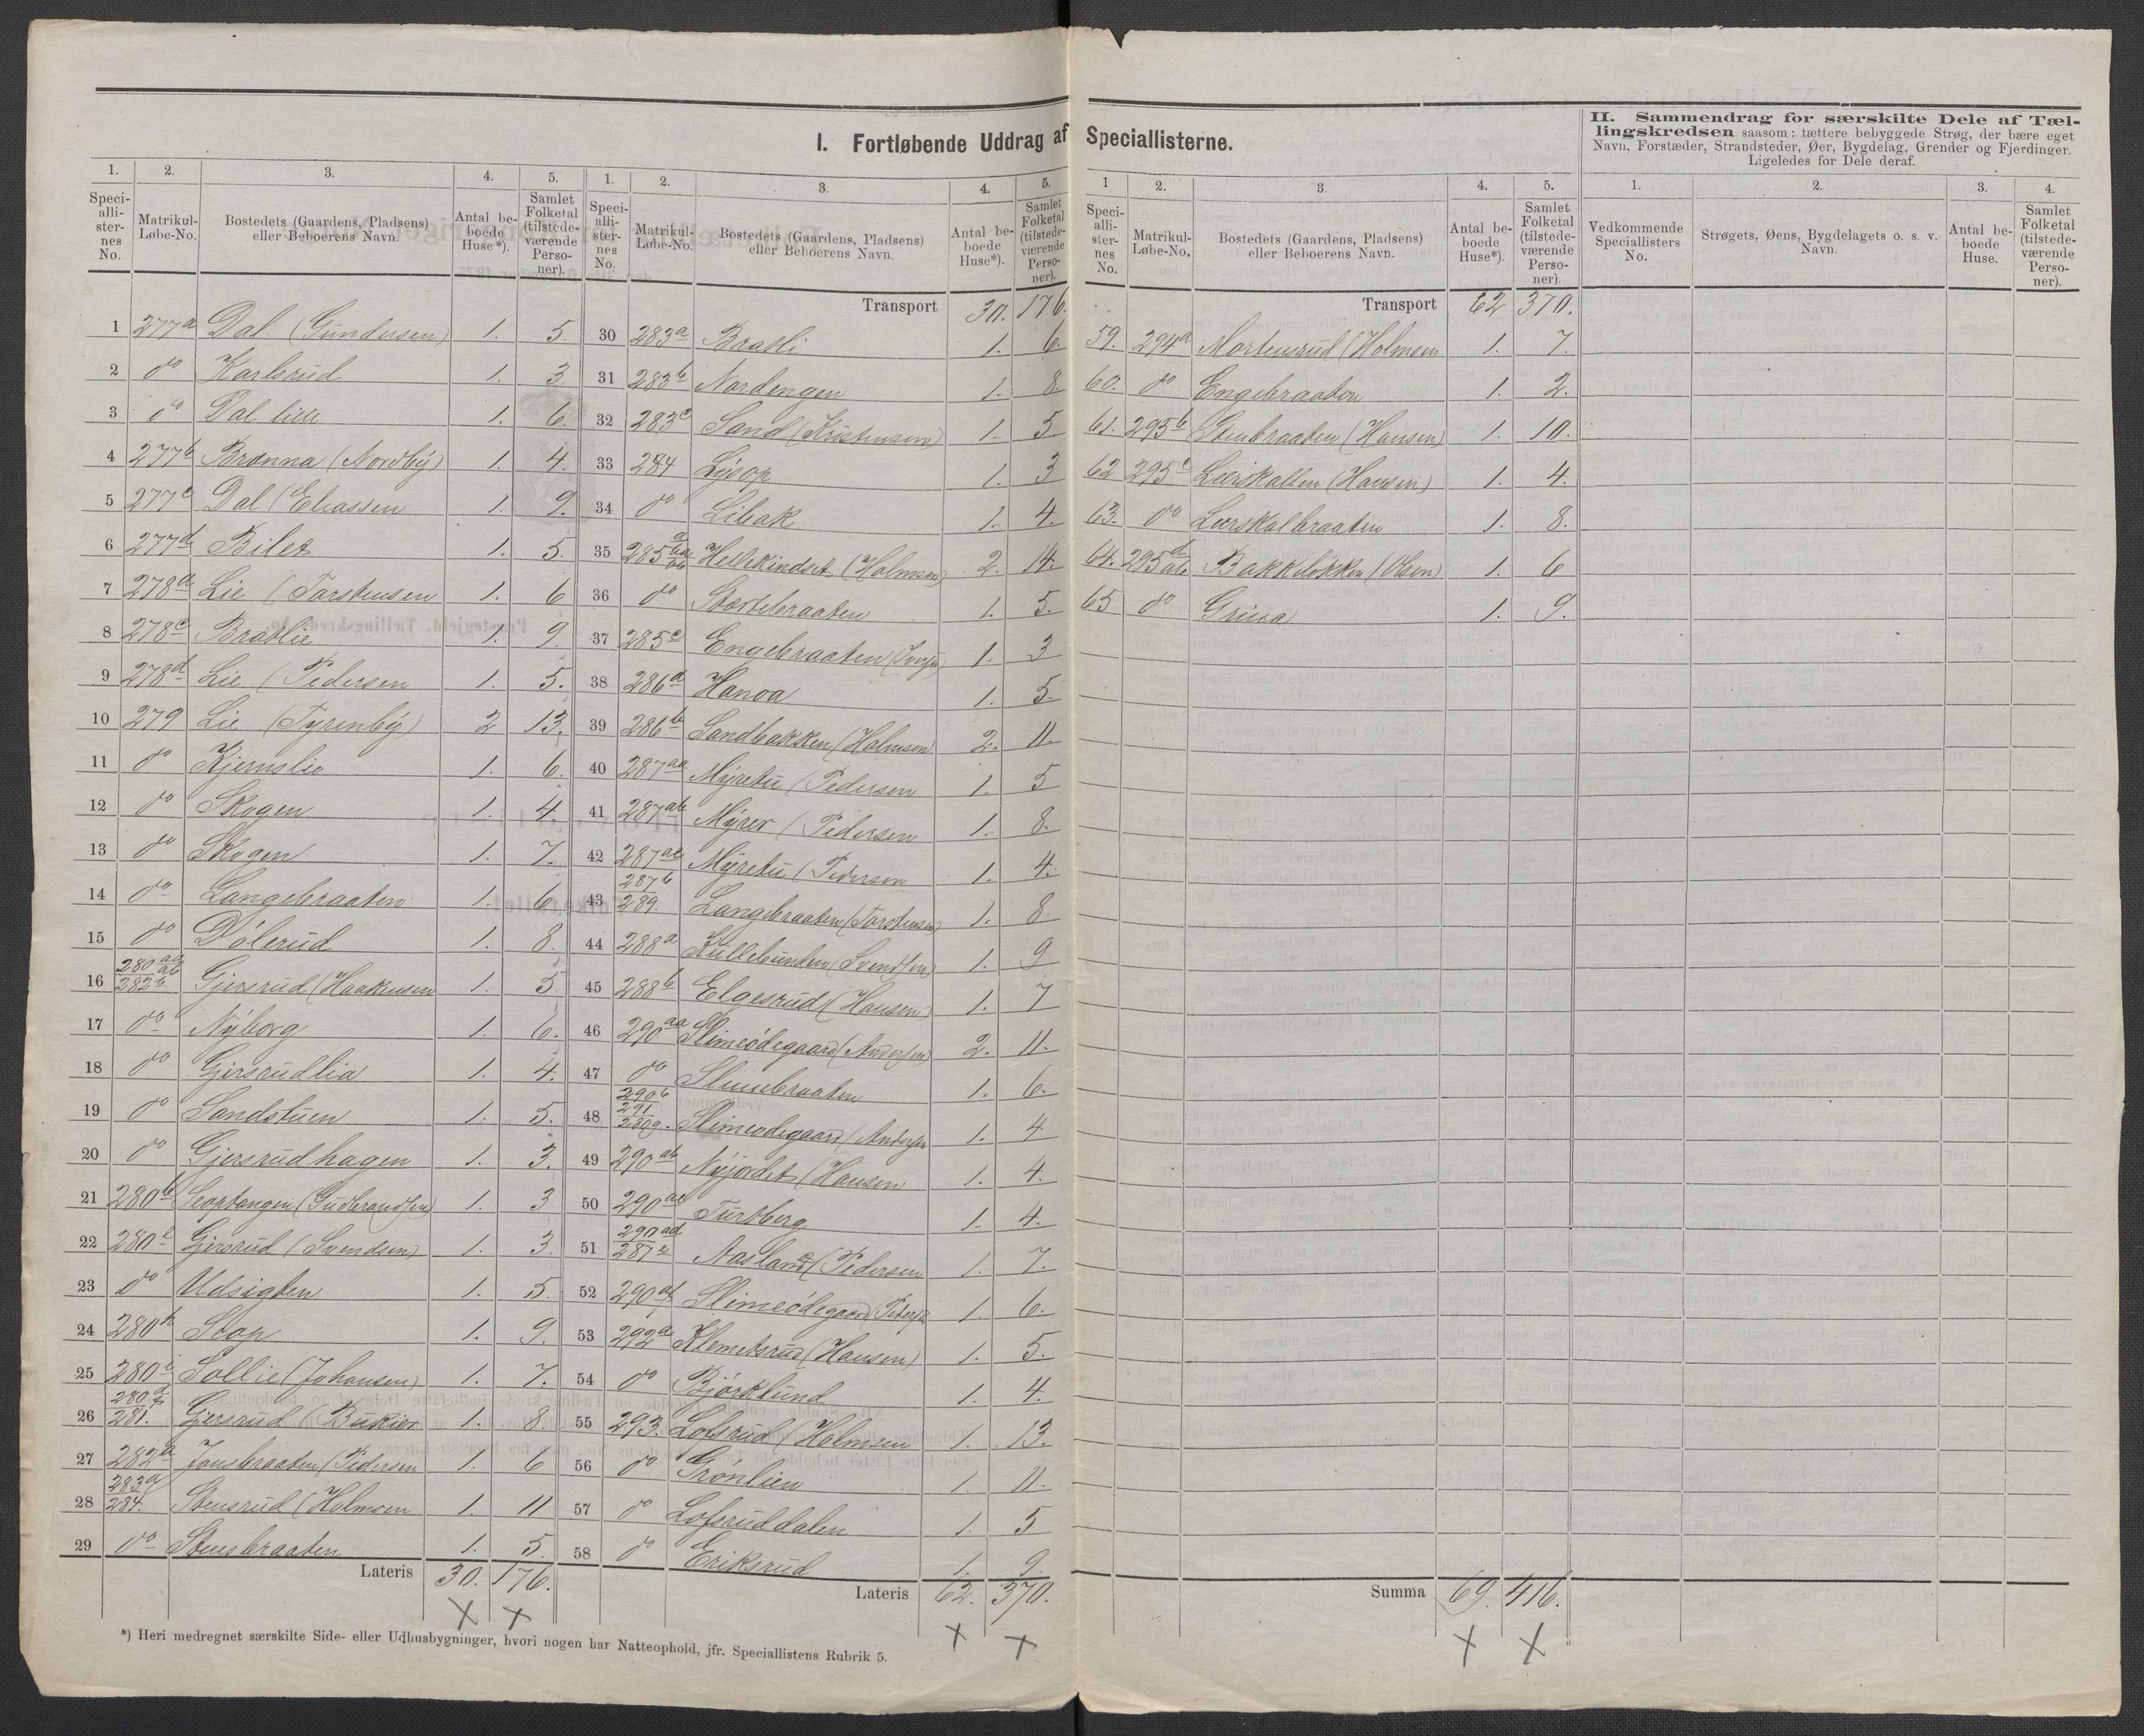 I. Fortløbende Uddrag af Speciallisterne.
II. Sammendrag for særskilte Dele af Tæl-
lingskredsen saasom: tættere bebyggede Strøg, der bære eget
Navn, Forstæder, Strandsteder, Øer, Bygdelag, Grender og Fjerdinger.
Ligeledes for Dele deraf.
1. 2. 3. 4. 5. 1. 2. 3. 4. 5. 1 2. 3. 4. 5. 1. 2. 3. 4.
Speci-alli-ster-nes No. Matrikul-Løbe-No. Bostedets (Gaardens, Pladsens) eller Beboerens Navn. Antal be-boede Huse*). Samlet Folketal (tilstede-værende Perso-ner).
Speci-alli-ster-nes No. Matrikul-Løbe-No. Bostedets (Gaardens, Pladsens) eller Beboerens Navn. Antal be-boede Huse*). Samlet Folketal (tilstede-værende Perso-ner).
Speci-alli-ster-nes No. Matrikul-Løbe-No. Bostedets (Gaardens, Pladsens) eller Beboerens Navn. Antal be-boede Huse*). Samlet Folketal (tilstede-værende Perso-ner).
Vedkommende Speciallisters No. Strøgets, Øens, Bygdelagets o. s. v. Navn. Antal be-boede Huse. Samlet Folketal (tilstede-værende Perso-ner).
1 277a Dal (Gundersen) 1. 5.
2 do Karlsrud 1. 3
3 do Dal lille 1. 6.
4 277b Brænna (Nordby) 1. 4.
5 277c Dal (Eliassen 1. 9.
6 277d Bilet 1. 5.
7 278a Lie (Torstensen 1. 6
8 278c Bratlie 1. 9.
9 278d Lie (Pedersen 1. 5.
10 279 Lie (Tyrenby) 2 13.
11 do Kjernslie 1. 6.
12 do Skogen 1. 4.
13 do Skogen 1. 7.
14 do Langebraaten 1. 6
15 do Dölerud 1. 8.
16 280aa ab 282b Gjersrud (Haakensen 1. 5
17 do Nyborg 1. 6.
18 do Gjersrudlia 1. 4.
19 do Sandstuen 1. 5.
20 do Gjersrudhagen 1. 3.
21 280b Stoptangen (Gudbrandsen) 1. 3
22 280 Gjersrud (Svendsen) 1. 3.
23 do Udsigten 1. 5.
24 280h Stop 1. 9.
25 280i Sollie (Johansen) 1. 7.
26 280 281. Gjersrud 1. 8.
27 282a Jonsbraaten (Pedersen 1. 6
28 283d 284. Stensrud (Holmsen 1. 11
29 do Stensbraaten 1. 5.
Lateris 30. 176.
Transport 30. 176.
30 283a Bratli 1. 6.
31 283b Nordengen 1. 8.
32 283c Sand (Kristensen) 1. 5
33 284 Lysop 1. 3
34 do Libak 1. 4.
35 285 Hellekindset (Holmsen) 2. 14.
36 do Stortebraaten 1. 5.
37 285c Engebraaten (Iversen) 1. 3
38 286a Hanoa 1. 5.
39 286b Sandbakken (Holmsen 2. 11.
40 287aa Myretu (Pedersen 1. 5
41 287ab Myrer (Pedersen 1. 8.
42 287ac Myretu (Pedersen 1. 4.
43 287b 289. Langebraaten (Torstensen) 1. 8
44 288a Kullebunden (Svendsen) 1. 9
45 288b Elgesrud (Hansen) 1. 7
46 290aa Slimeödegaard (Andersen) 2. 11.
47 do Slimebraaten 1. 6.
48 290b 291 Slimeödegaard (Andersen 1. 4
49 290ab Nyjordet (Hansen 1. 4.
50 290ae Turtberg 1. 4.
51 290ad 287 Aasland (Pedersen 1. 7.
52 290af Slimeödegaard (Pedersen 1. 6.
53 292a Klemetsrud (Hansen) 1. 5.
54 do Björklund 1. 4.
55 293. Lofsrud (Holmsen 1. 13.
56 do Grönlien 1. 11.
57 do Lofsruddalen 1. 5
58 do Eriksrud 1. 9.
Lateris 62. 370.
Transport 62 370.
59. 294a Mortensrud (Holmsen 1. 7.
60. do Engebraaten 1. 2.
61. 295b Stenbraaten (Hansen) 1. 10.
62 295c Leerskallen (Hansen) 1. 4.
63. do Leerskalbraaten 1. 8.
64. 295d ab Bakkelökken (Olsen) 1. 6
65 do Griua 1. 9.
Summa 69. 416.
*) Heri medregnet særskilte Side- eller Udhusbygninger, hvori nogen har Natteophold, jfr. Speciallistens Rubrik 5.